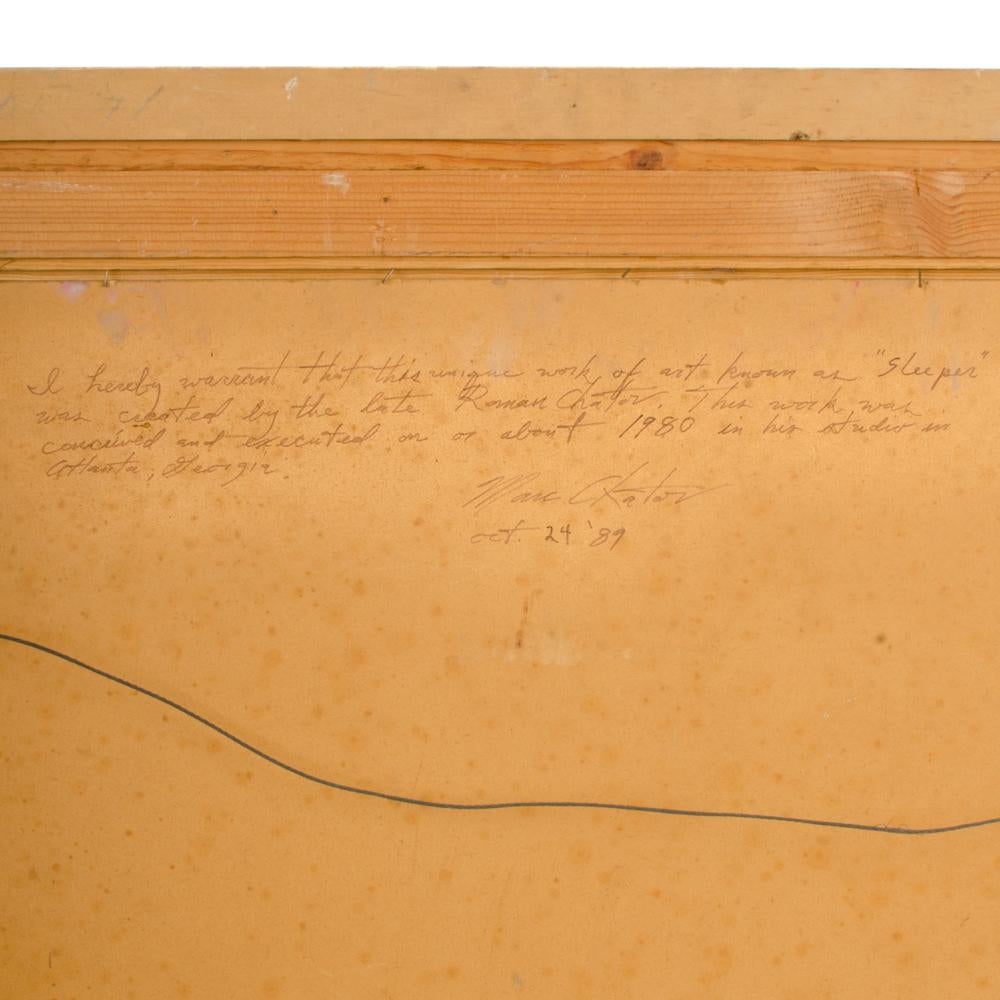 I hereby warrant that this unique work of art known as "Sleeper"
was created by the late Roman Chatov. This work was
conceived and executed on or about 1980 in his studio in
Atlanta, Georgia.
Marc Chatov
oct. 24 '89